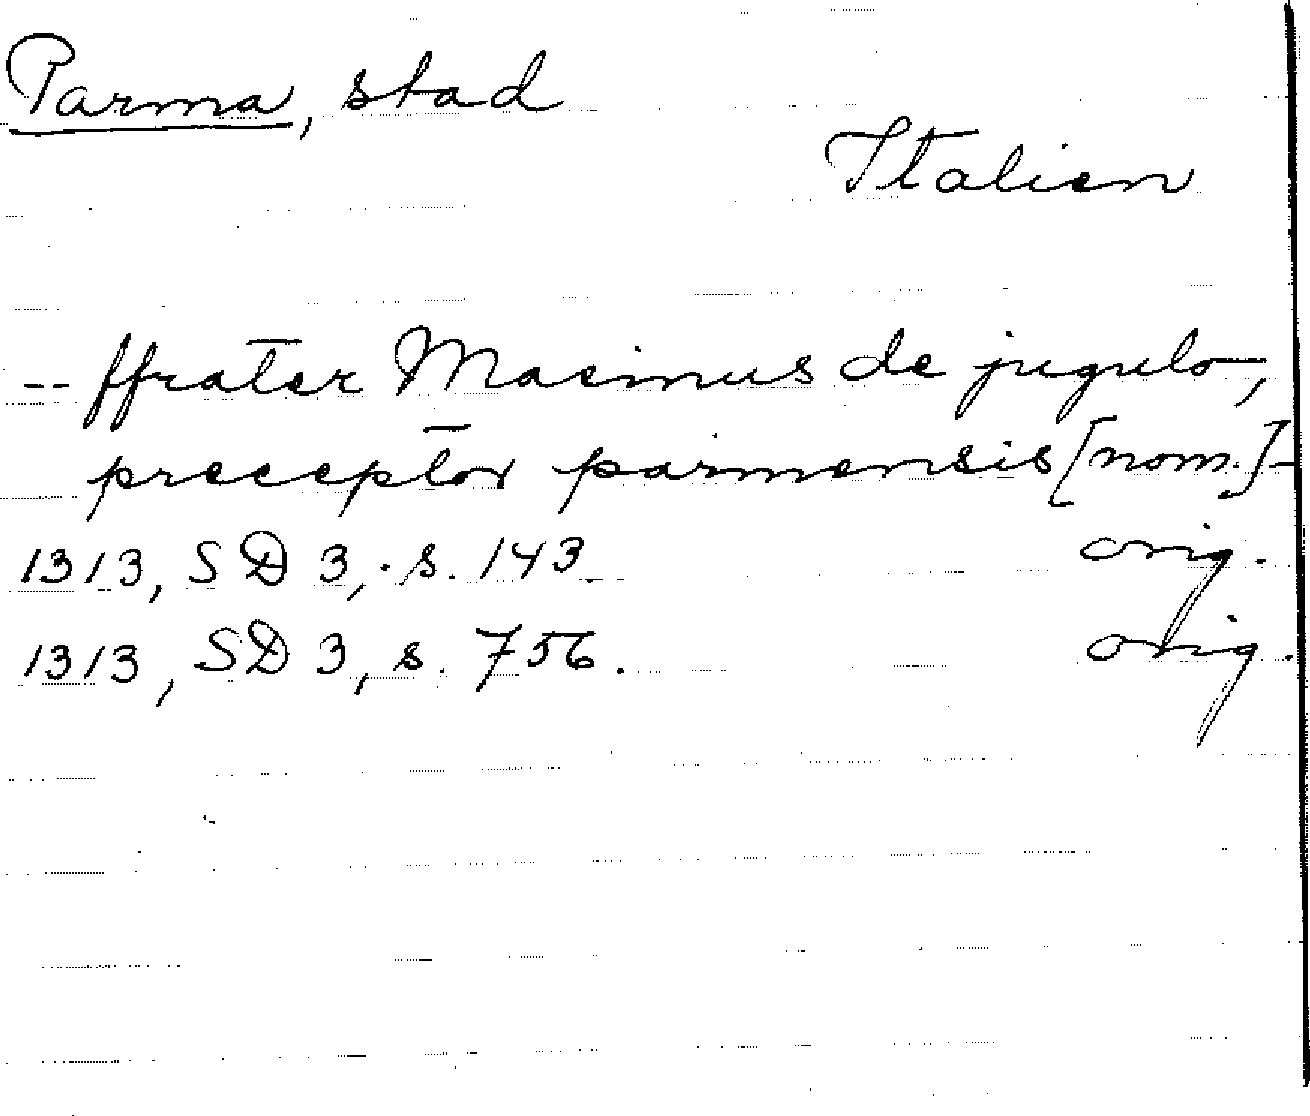 Parma, stad
Italien
-- ffrater Macimus de jugulo,
preceptor parmensis [nom.] -
1313, SD 3, s. 143. orig.
1313, SD 3, s. 756. orig.